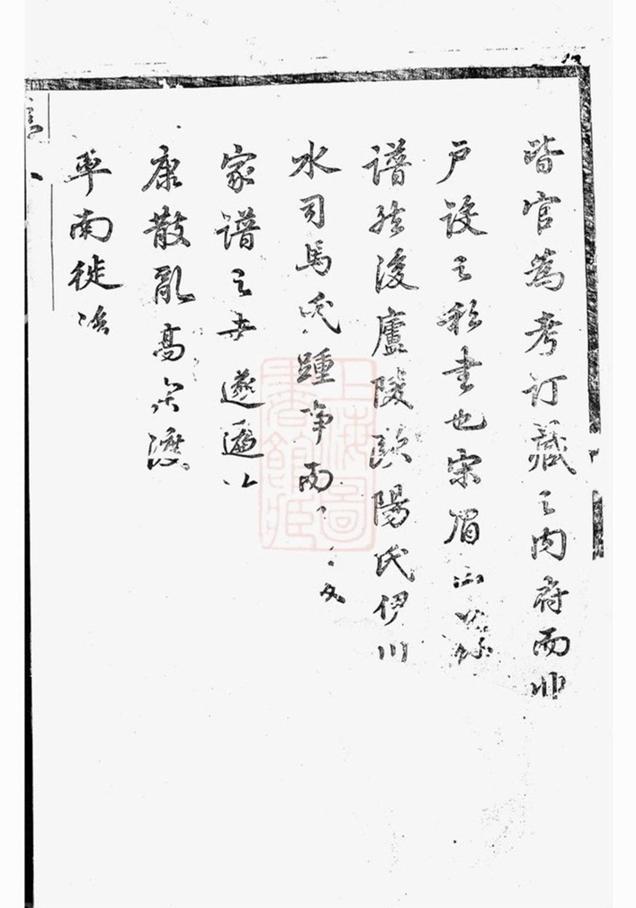 皆官為考訂藏之内府而非
户設之私書也宋眉山
譜然後廬陵歐陽氏伊川
水司馬氏踵爭而
家譜之世遂遍
康散亂高宗渡
平南徙
上海圖書館藏